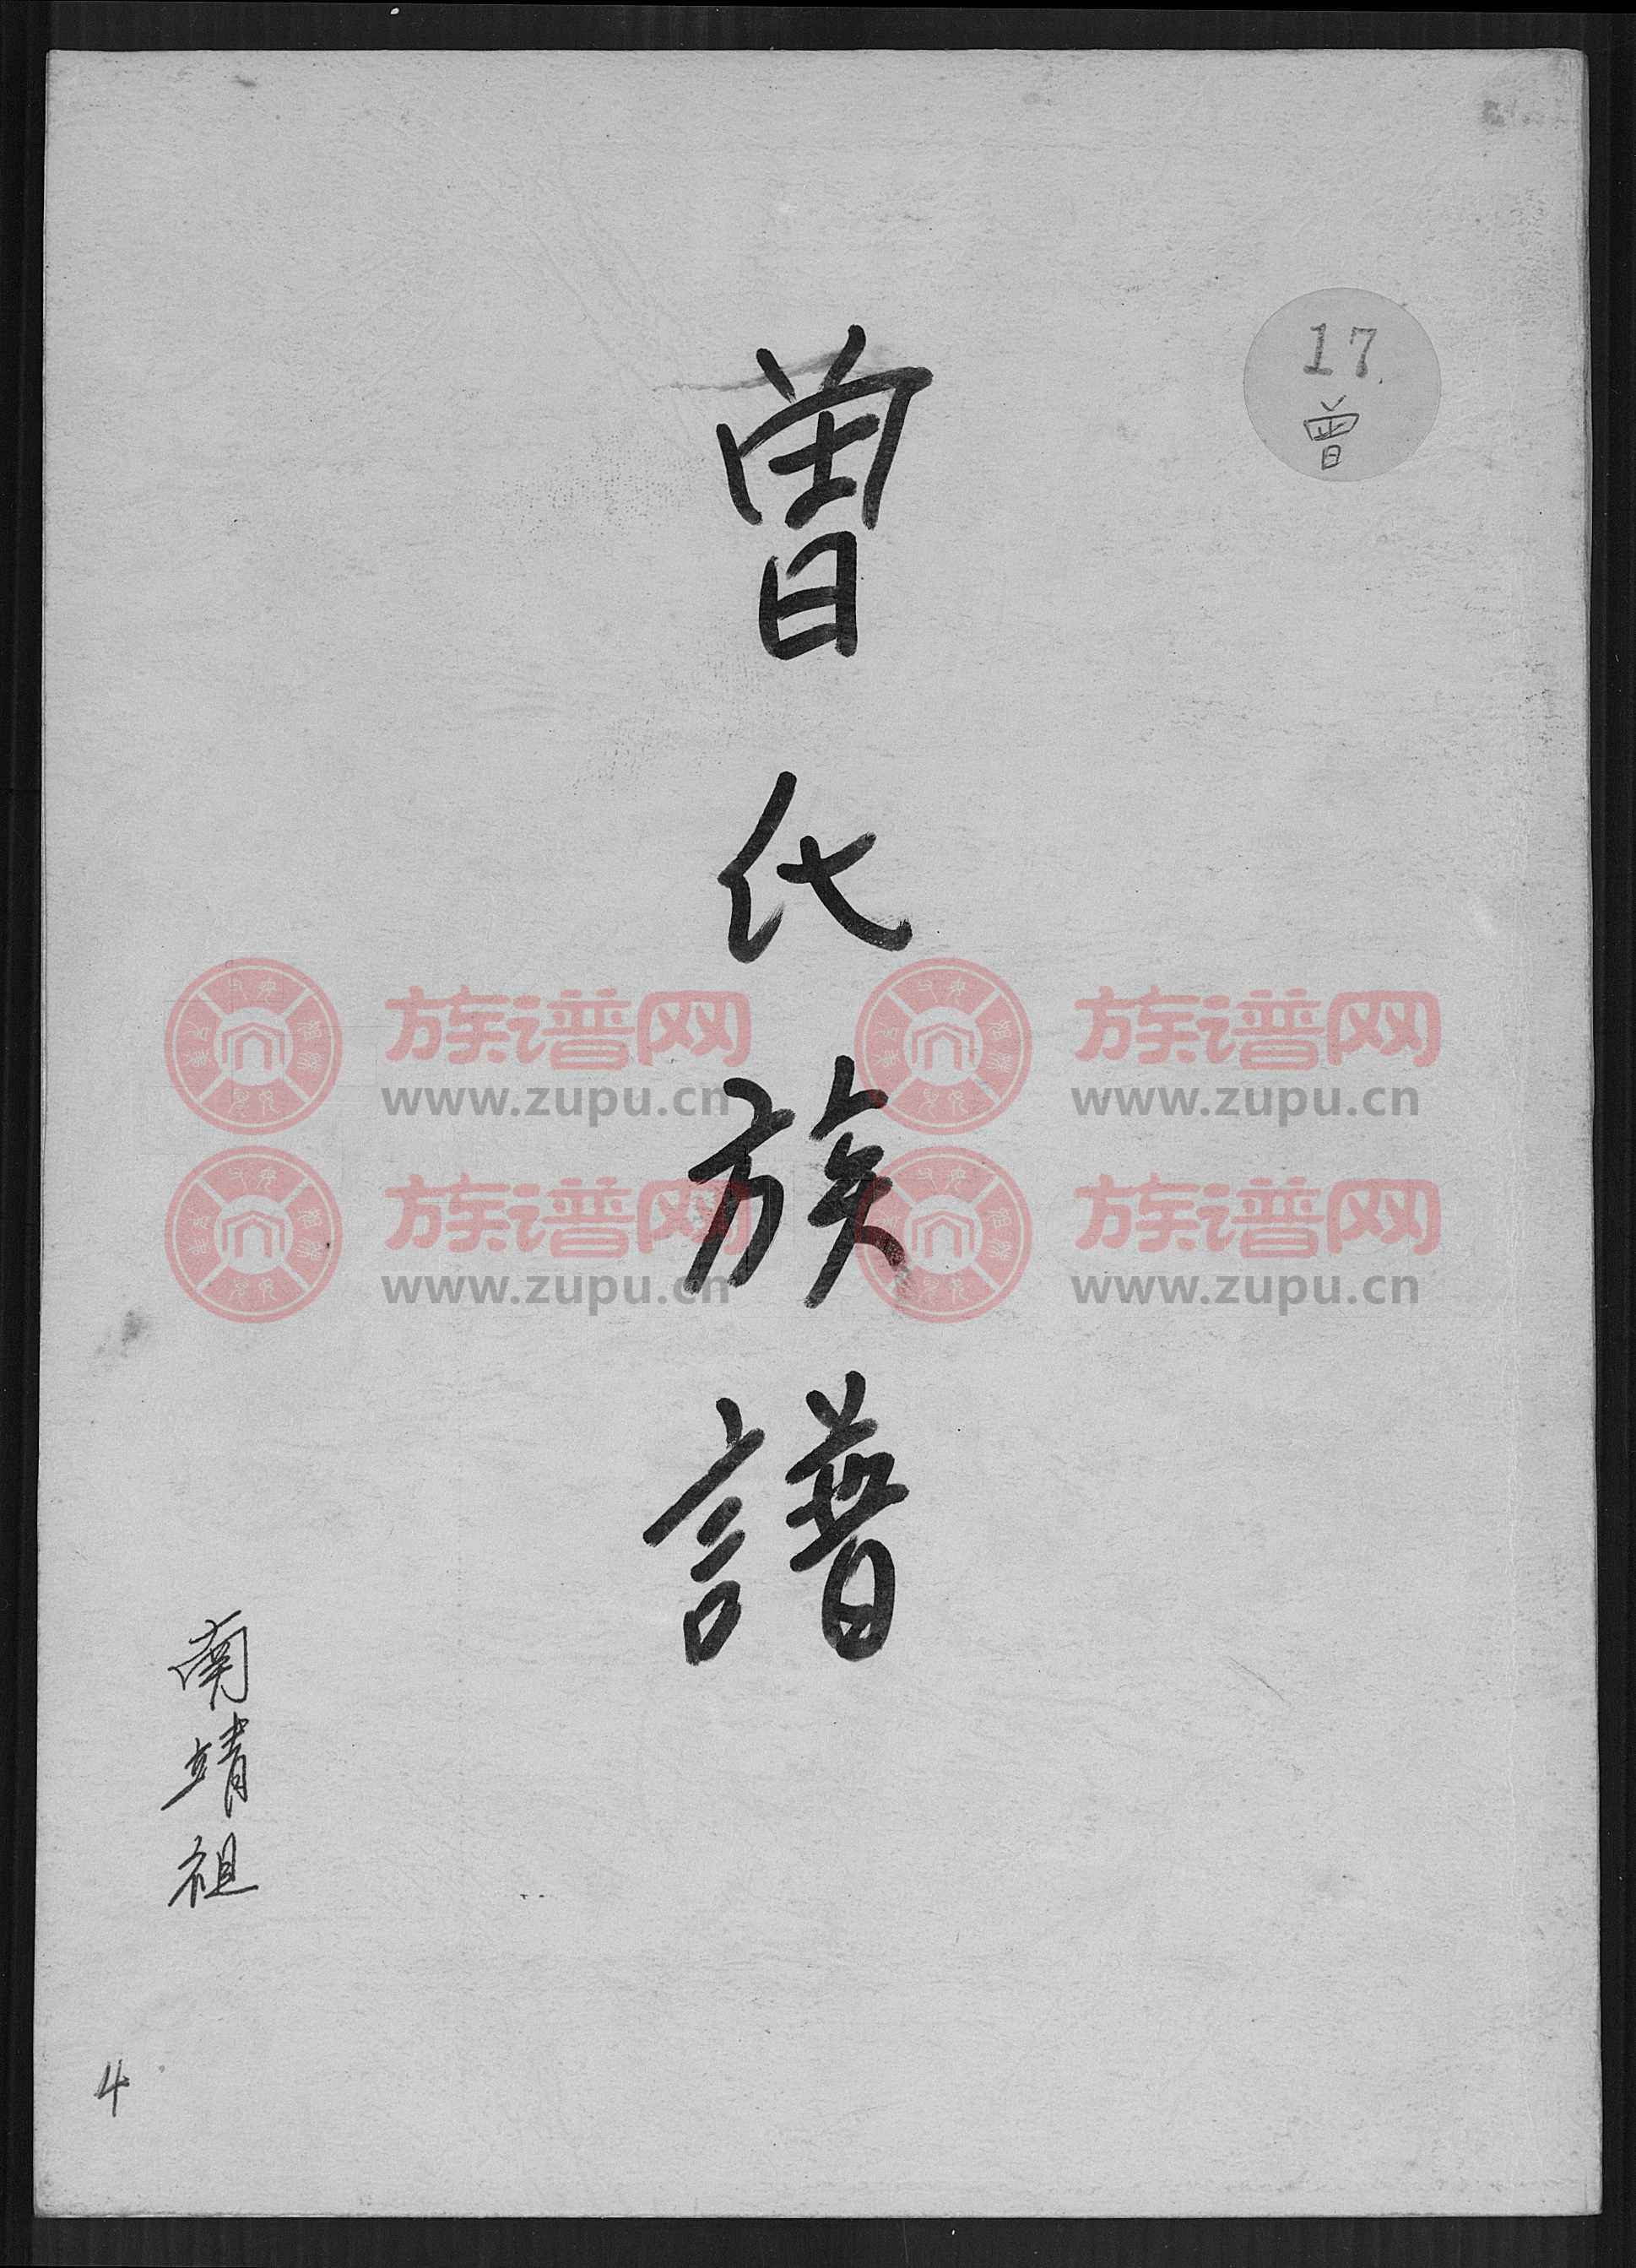 17
曾
曾氏族譜
南靖祖
4
族谱网 族谱网
www.zupu.cn www.zupu.cn
族谱网 族谱网
www.zupu.cn www.zupu.cn